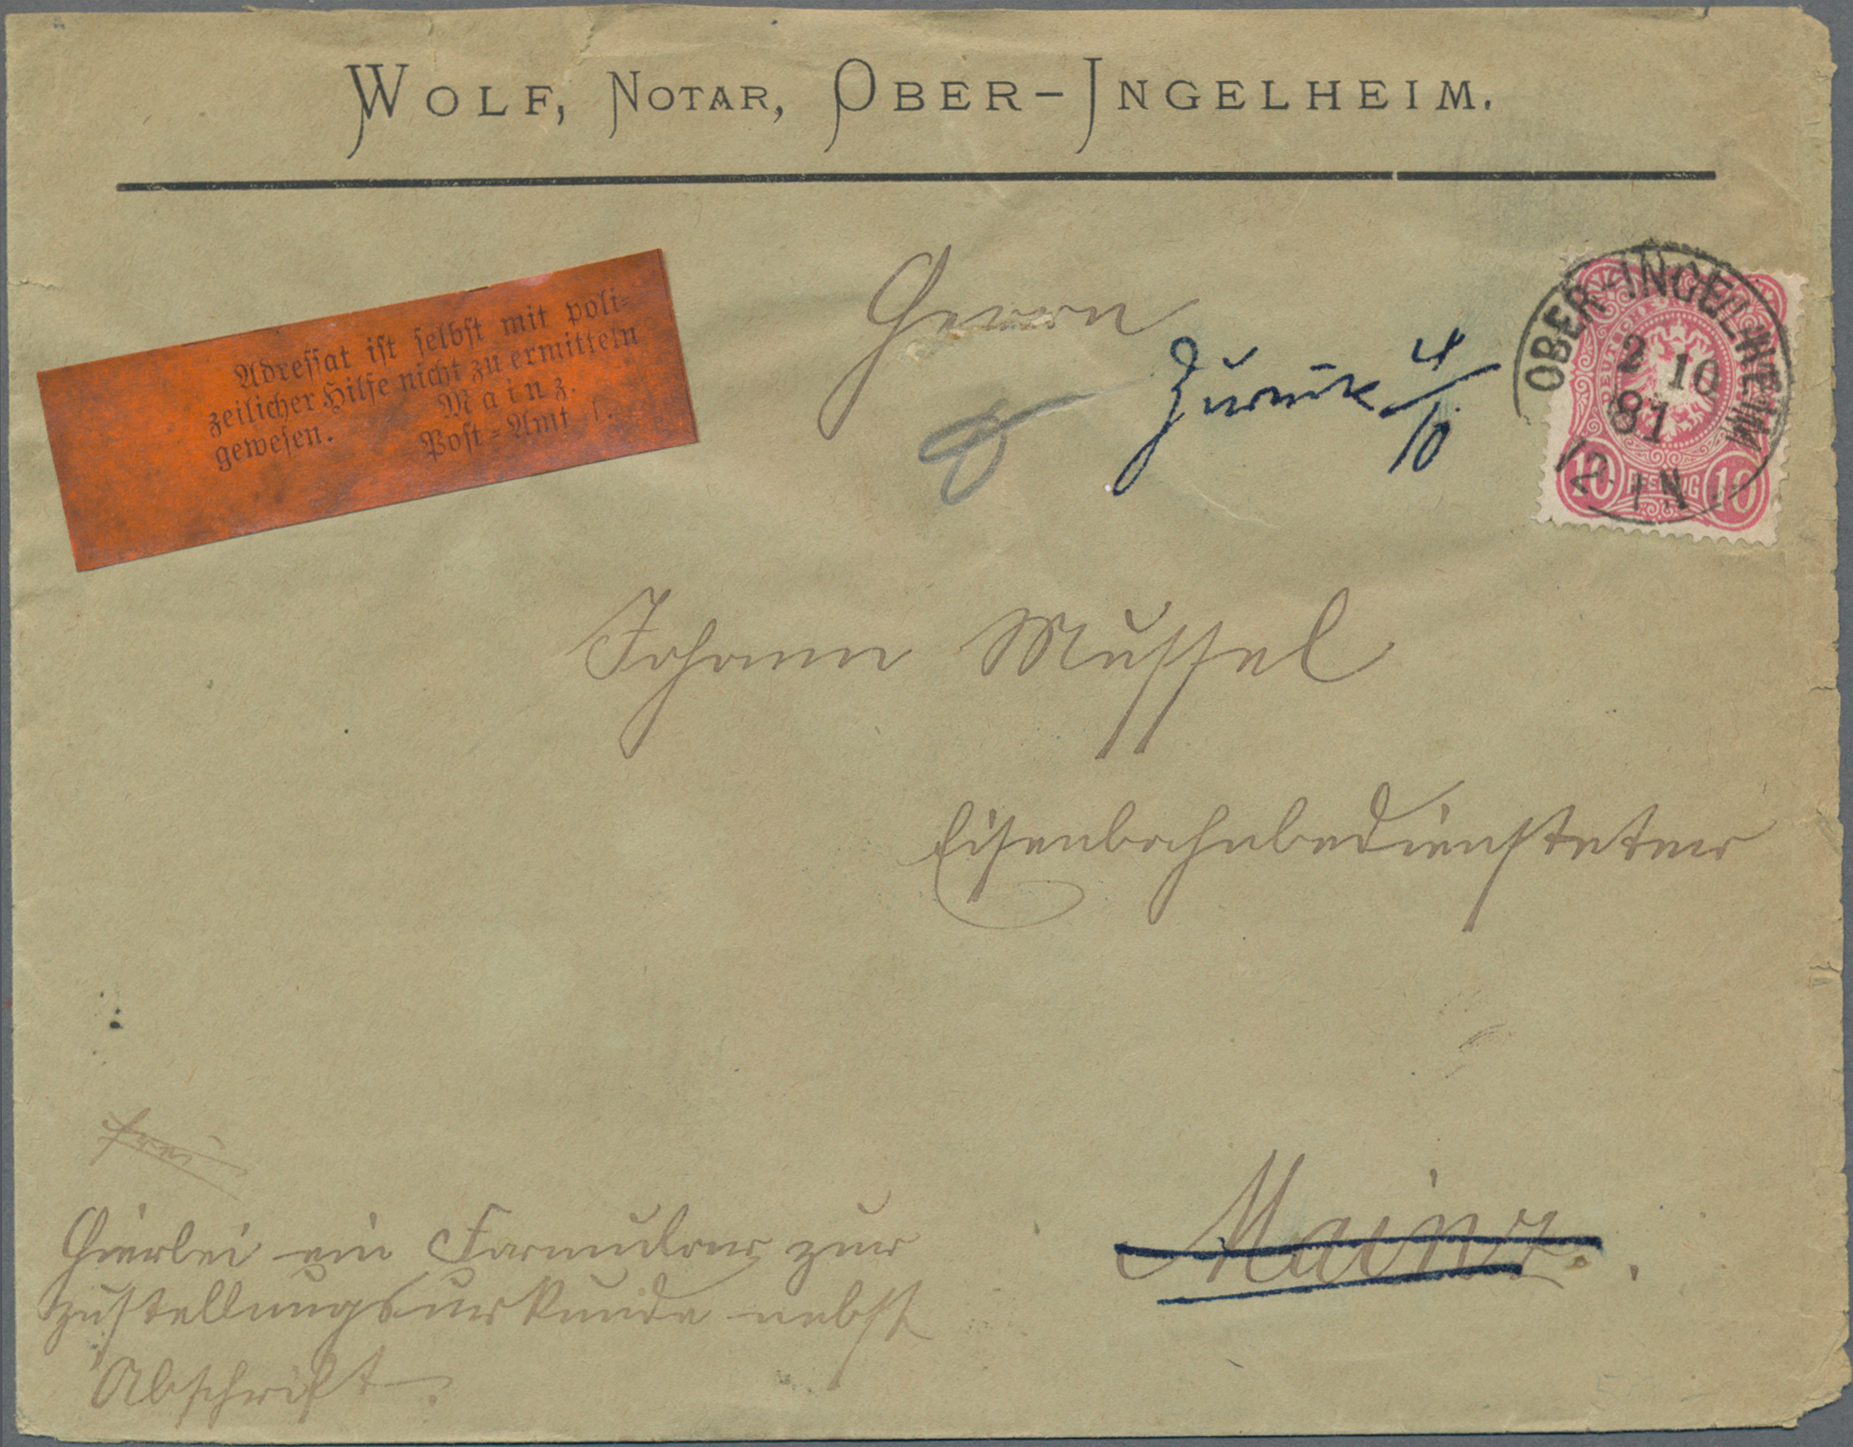 WOLF, NOTAR, OBER-INGELHEIM.
Adressat ist selbst mit poli=
zeilicher Hilfe nicht zu ermitteln
gewesen.
Mainz.
Post=Amt 1.
Herrn
Zurück 4/10
OBER-INGELHEIM
2 10
81
12-1N
10 PFENNIG 10
Johann Mussel
Eisenbahnbediensteter
Mainz.
frei
Hierbei ein Formular zur
Zustellungsurkunde nebst
Abschrift.